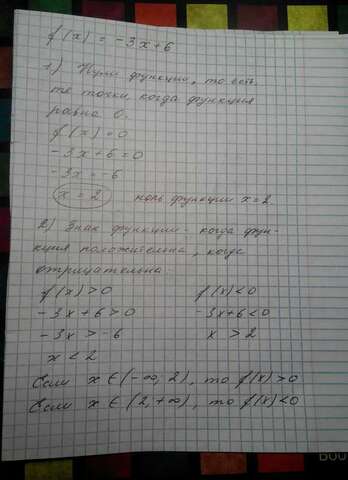 f(x) = -3x+6
1.) Нули функции, то есть
те точки, когда функция
равна 0.
f(x)=0
-3x+6=0
-3x=-6
x=2 ноль функции x=2.
2.) Знак функции - когда фун-
кция положительна, когда
отрицательна.
f(x)>0 f(x)<0
-3x+6>0 -3x+6<0
-3x>-6 x>2
x<2
Если x∈(-∞,2), то f(x)>0
Если x∈(2,+∞), то f(x)<0